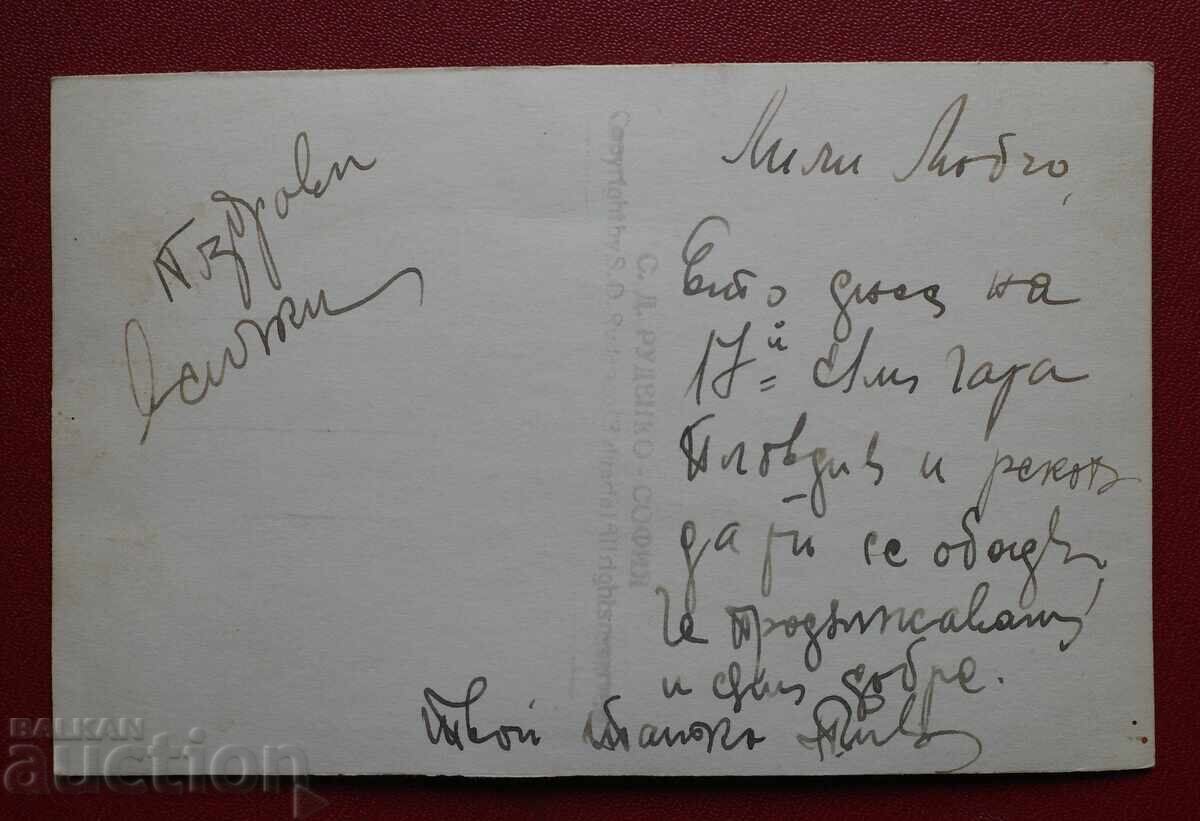 Мили Любчо,
Ето днес на
17й съм гара
Пловдив и реших
да ти се обадя,
че продължавам
и съм добре.
Твой Станчо
Поздрави
всички
С. Д. РУДЕНКО - СОФИЯ
Copyright by S. D. All rights reserved
BALKAN
auction